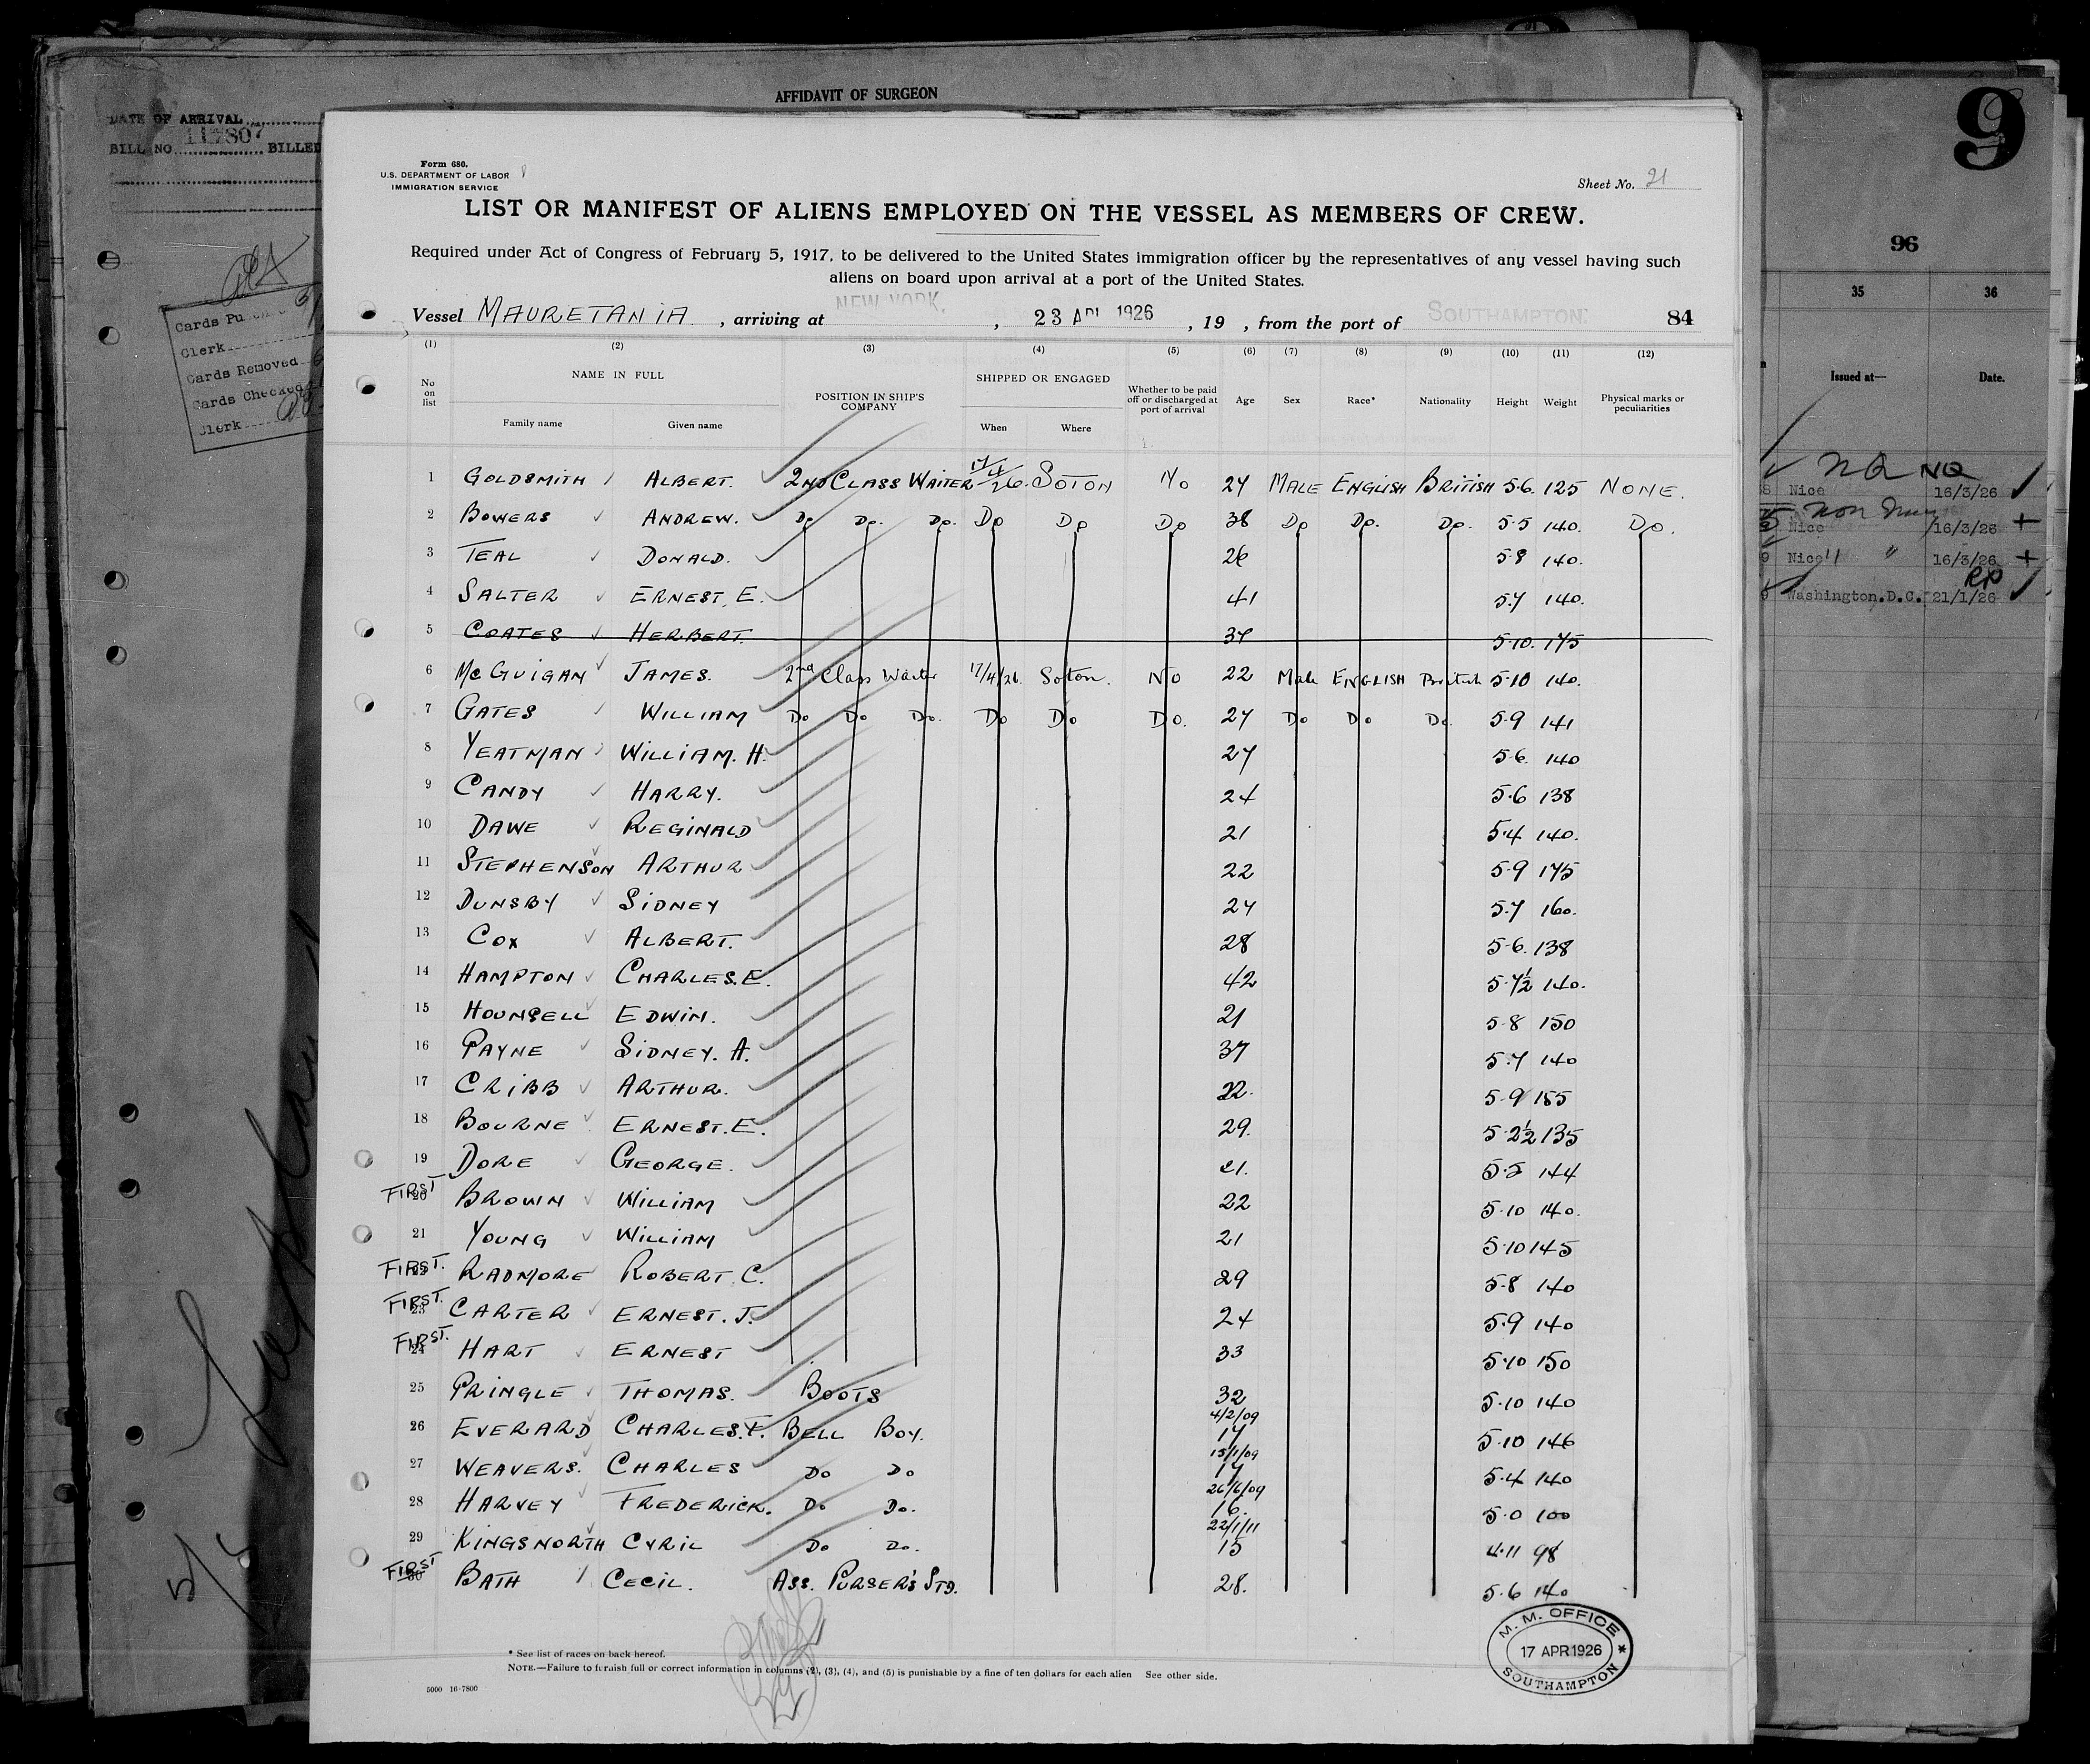 AFFIDAVIT OF SURGEON
DATE OF ARRIVAL
BILL NO 117807 BILLED
Cards Pu
Clerk
Cards Removed
Cards Checked
Clerk
9
96
35 36
Issued at— Date.
NQ NQ
Nice 16/3/26
Non
Nice 16/3/26 +
Nice " " 16/3/26 +
RP
Washington.D.C. 21/1/26
Form 680.
U.S. DEPARTMENT OF LABOR
IMMIGRATION SERVICE
Sheet No. 21
LIST OR MANIFEST OF ALIENS EMPLOYED ON THE VESSEL AS MEMBERS OF CREW.
Required under Act of Congress of February 5, 1917, to be delivered to the United States immigration officer by the representatives of any vessel having such
aliens on board upon arrival at a port of the United States.
Vessel MAURETANIA , arriving at NEW YORK, , 23 APL 1926 , 19 , from the port of SOUTHAMPTON. 84
(1) (2) (3) (4) (5) (6) (7) (8) (9) (10) (11) (12)
No on list NAME IN FULL POSITION IN SHIP'S COMPANY SHIPPED OR ENGAGED Whether to be paid off or discharged at port of arrival Age Sex Race* Nationality Height Weight Physical marks or peculiarities
Family name Given name When Where
1 GOLDSMITH ALBERT. 2ND CLASS WAITER 17/4/26. SOTON NO 27 MALE ENGLISH BRITISH 5.6. 125 NONE.
2 BOWERS ANDREW. Do Do. Do. Do Do Do 38 Do Do. Do. 5.5 140. Do.
3 TEAL DONALD. 26 5.8 140.
4 SALTER ERNEST. E. 41 5.7 140.
5 COATES HERBERT. 37 5.10. 175
6 McGUIGAN JAMES. 2nd Class Waiter 17/4/26. Soton. NO 22 Male ENGLISH British 5.10 140.
7 GATES WILLIAM Do Do Do. Do Do Do. 27 Do Do Do. 5.9 141
8 YEATMAN WILLIAM. H. 27 5.6. 140
9 CANDY HARRY. 24 5.6 138
10 DAWE REGINALD 21 5.4 140.
11 STEPHENSON ARTHUR 22 5.9 175
12 DUNSBY SIDNEY 27 5.7 160.
13 COX ALBERT. 28 5.6. 138
14 HAMPTON CHARLES.E. 42 5.7½ 140.
15 HOUNSELL EDWIN. 21 5.8 150
16 PAYNE SIDNEY. A. 37 5.7 140
17 CRIBB ARTHUR. 22. 5.9 155
18 BOURNE ERNEST.E. 29. 5.2½ 135
19 DORE GEORGE. 21. 5.5 144
FIRST 20 BROWN WILLIAM 22 5.10 140.
21 YOUNG WILLIAM 21 5.10 145
FIRST. 22 RADMORE ROBERT. C. 29 5.8 140
FIRST. 23 CARTER ERNEST. J. 24 5.9 140
FIRST. 24 HART ERNEST 33 5.10 150
25 PRINGLE THOMAS. BOOTS 32 5.10 140
26 EVERARD CHARLES.F. BELL BOY. 4/2/09 17 5.10 146
27 WEAVERS. CHARLES Do Do 15/1/09 17 5.4 140
28 HARVEY FREDERICK. Do Do. 26/6/09 16. 5.0 100
29 KINGSNORTH CYRIL Do Do. 22/1/11 15 4.11 98
FIRST 30 BATH CECIL. ASS. PURSER'S STD. 28. 5.6 140
* See list of races on back hereof.
NOTE.—Failure to furnish full or correct information in columns (2), (3), (4), and (5) is punishable by a fine of ten dollars for each alien See other side.
5000 16-7800
M. M. OFFICE
17 APR 1926
SOUTHAMPTON